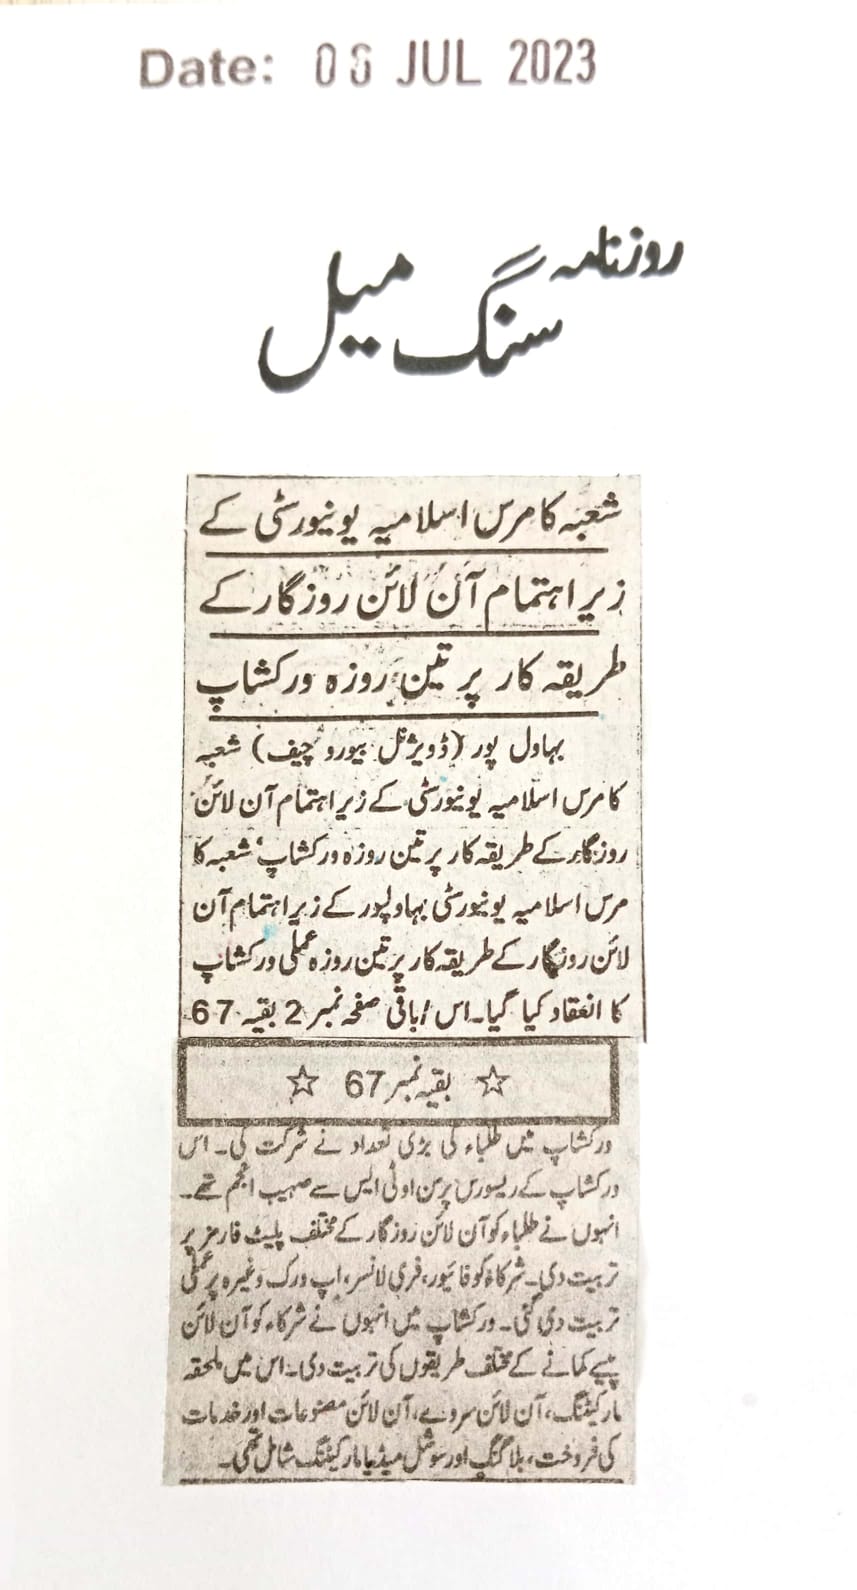 Date: 06 JUL 2023
روزنامہ
سنگ میل
شعبہ کامرس اسلامیہ یونیورسٹی کے
زیر اہتمام آن لائن روزگار کے
طریقہ کار پر تین روزہ ورکشاپ
بہاول پور (ڈویژنل بیورو چیف) شعبہ
کامرس اسلامیہ یونیورسٹی کے زیر اہتمام آن لائن
روزگار کے طریقہ کار پر تین روزہ ورکشاپ، شعبہ کا
مرس اسلامیہ یونیورسٹی بہاولپور کے زیر اہتمام آن
لائن روزگار کے طریقہ کار پر تین روزہ عملی ورکشاپ
کا انعقاد کیا گیا۔ اس /باقی صفحہ نمبر 2 بقیہ 67
☆ بقیہ نمبر 67 ☆
ورکشاپ میں طلباء کی بڑی تعداد نے شرکت کی۔ اس
ورکشاپ کے ریسورس پرسن او ٹی ایس سے صہیب انجم تھے۔
انہوں نے طلباء کو آن لائن روزگار کے مختلف پلیٹ فارمز پر
تربیت دی۔ شرکاء کو فائیور، فری لانسر، اپ ورک وغیرہ پر عملی
تربیت دی گئی۔ ورکشاپ میں انہوں نے شرکاء کو آن لائن
پیسے کمانے کے مختلف طریقوں کی تربیت دی۔ اس میں ملحقہ
مارکیٹنگ، آن لائن سروے، آن لائن مصنوعات اور خدمات
کی فروخت، بلاگنگ اور سوشل میڈیا مارکیٹنگ شامل تھی۔